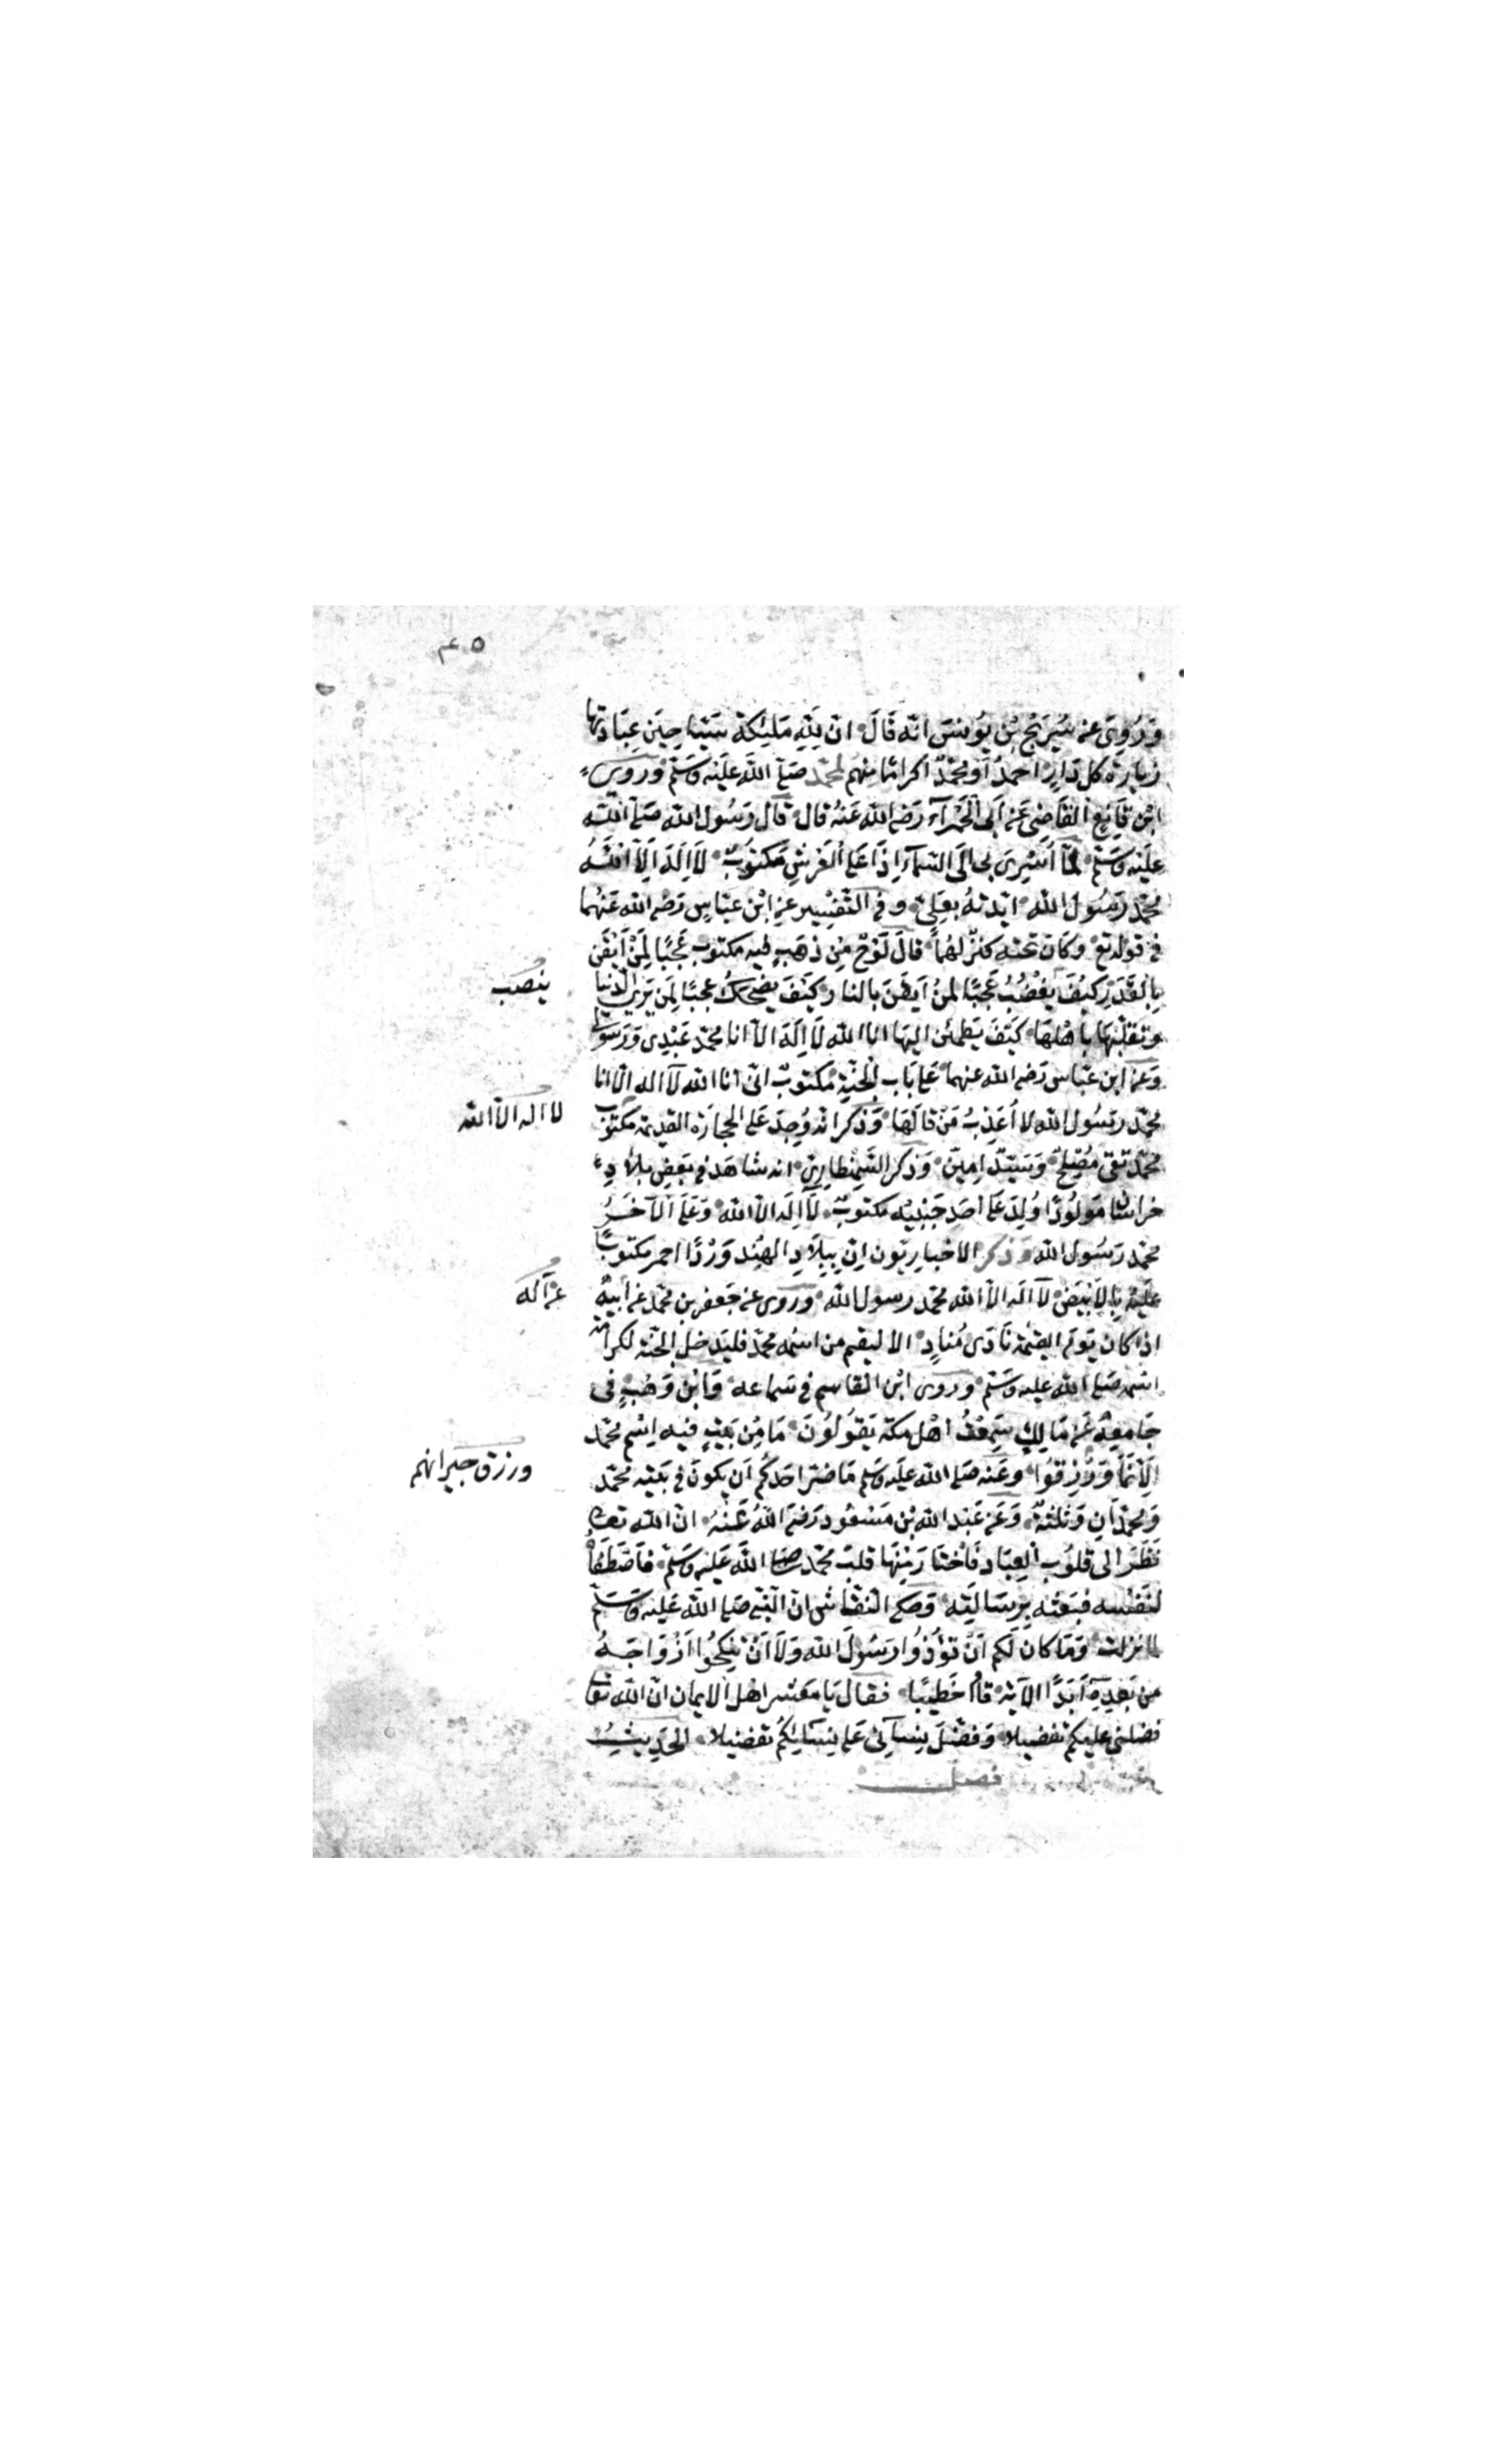 وَرُوِىَ عن سُرَيْجِ بْنِ يُونسَ انّه قَالَ انّ لِلّهِ مَلٰئِكة سَيَّاحِينَ عِبَادتها
زيارة كل دَارٍ احمدُ أو محمّدٌ اكرامًا منهم لمحمّد صَلّى اللّه عَلَيْه وَسَلّم ورَوى
ابْن قَانِعٍ القَاضِى عَن أبى الحَمْرَآء رَضى الله عَنْهُ قال قَال رَسُول الله صَلّى اللّه
عَلَيْه وَسَلّم لمّا أُسْرِىَ بى الَى السّمآء اِذَا عَلى العَرْشِ مَكتوبٌ لَا اِلَهَ اِلّا اللّٰهُ
محمّد رَسُول الله ايّدتهُ بعَلِىّ وفى التّفْسِير عن ابْن عَبّاس رَضى الله عَنْهُما
فى قوله تع وكَانَ تحته كنزٌ لهُما قالَ لَوْحٌ مِن ذهَبٍ فيه مكتوب عَجَبًا لِمَنْ أيْقَنَ
بِالْقَدَرِ كَيْفَ يغْضَبُ عَجَبًا لِمَنْ أيقَنَ بالنار كَيْفَ يضحك عَجَبًا لِمَن يَرى الدّنيا
ينصب
وَتقلّبَهَا بِأهْلِهَا كَيْفَ يَطمئن اليهَا انا الله لَا اِلَهَ الّا انا محمّد عَبْدِى وَرَسُولى
وَعَن ابن عَبّاس رَضى الله عنهما عَلى بَاب الْجَنّةِ مكتوبٌ انّى انا الله لَا اله الّا انا
محمّد رسُول الله لا أُعَذّبُ مَنْ قالَهَا وَذُكر انه وُجدَ عَلى الحجارَة القديمَة مكتوب
لا اله الّا اللّه
محمّد تَقى مُصْلحٌ وَسَيّدٌ امِينٌ وَذَكر السَّمِنْطَارِىّ انه شاهَدَ فى بَعْض بلَادِ
خراسَان مَولُودًا وُلِدَ عَلى احَدِ جَنْبَيْه مكتوبٌ لَا اِلَه الّا الله وَعَلَى الْآخَرُ
محمّد رَسُول اللّه وَذكر الاخباريّون انّ بِبِلَادِ الهِنْد وَرْدًا احمر مكتوبًا
عَلَيْهِ بِالاَبْيَضِ لَا الَه الّا الله محمّد رسول الله ورَوى عن جَعفر بن محمّد عن أبيهِ
عن آله
اذا كان يَوم القيٰمة نَادَى مُنادٍ الا ليقم من اسمه محمّد فليَدخل الجنّة لكرامة
اسمه صَلى الله عليه وَسَلّم ورَوى ابْن القاسم فى سَماعه وَابْن وَهْبٍ فى
جَامِعِهِ عَن مَالِكٍ سَمِعْتُ اهْل مكّة يَقُولُونَ مَا مِن بَيْتٍ فيه اِسْم محمّد
اِلّا نَمَا وَرُزِقُوا وَعَنه صَلى الله عليه وَسَلم مَا ضَرّ احَدكُم اَن يكونَ فى بَيْته محمّد
ورزق جيرانهم
وَمحمّدَانِ وَثلٰثةٌ وَعَن عَبْد الله بْن مَسْعُود رَضى اللهُ عَنْهُ انّ الله تعالى
نَظَرَ الى قلُوب العِبَاد فَاخْتَارَ مِنْهَا قلبَ محمّد صلى اللّه عَليْه وَسَلّم فاصْطَفاهُ
لنَفْسه فبَعَثه بِرِسَالَتِه وَحكى النقّاش انّ النّبى صَلى اللّه عَليْه وَسَلّم
لما نزلت وَمَا كان لَكم اَنْ تُؤْذُوا رَسُولَ اللّه وَلَا اَنْ تَنْكِحُوا اَزْوَاجَهُ
من بَعْدِهِ اَبَدًا الآية قامَ خَطيبًا فقال يَا مَعْشر اهْل الايمان انّ اللّه تعالى
فضّلنى عليكم تفضيلا وَفضّلَ نِسَآئى عَلى نِسَائِكُمْ تفضيلا الحَدِيث
فصل